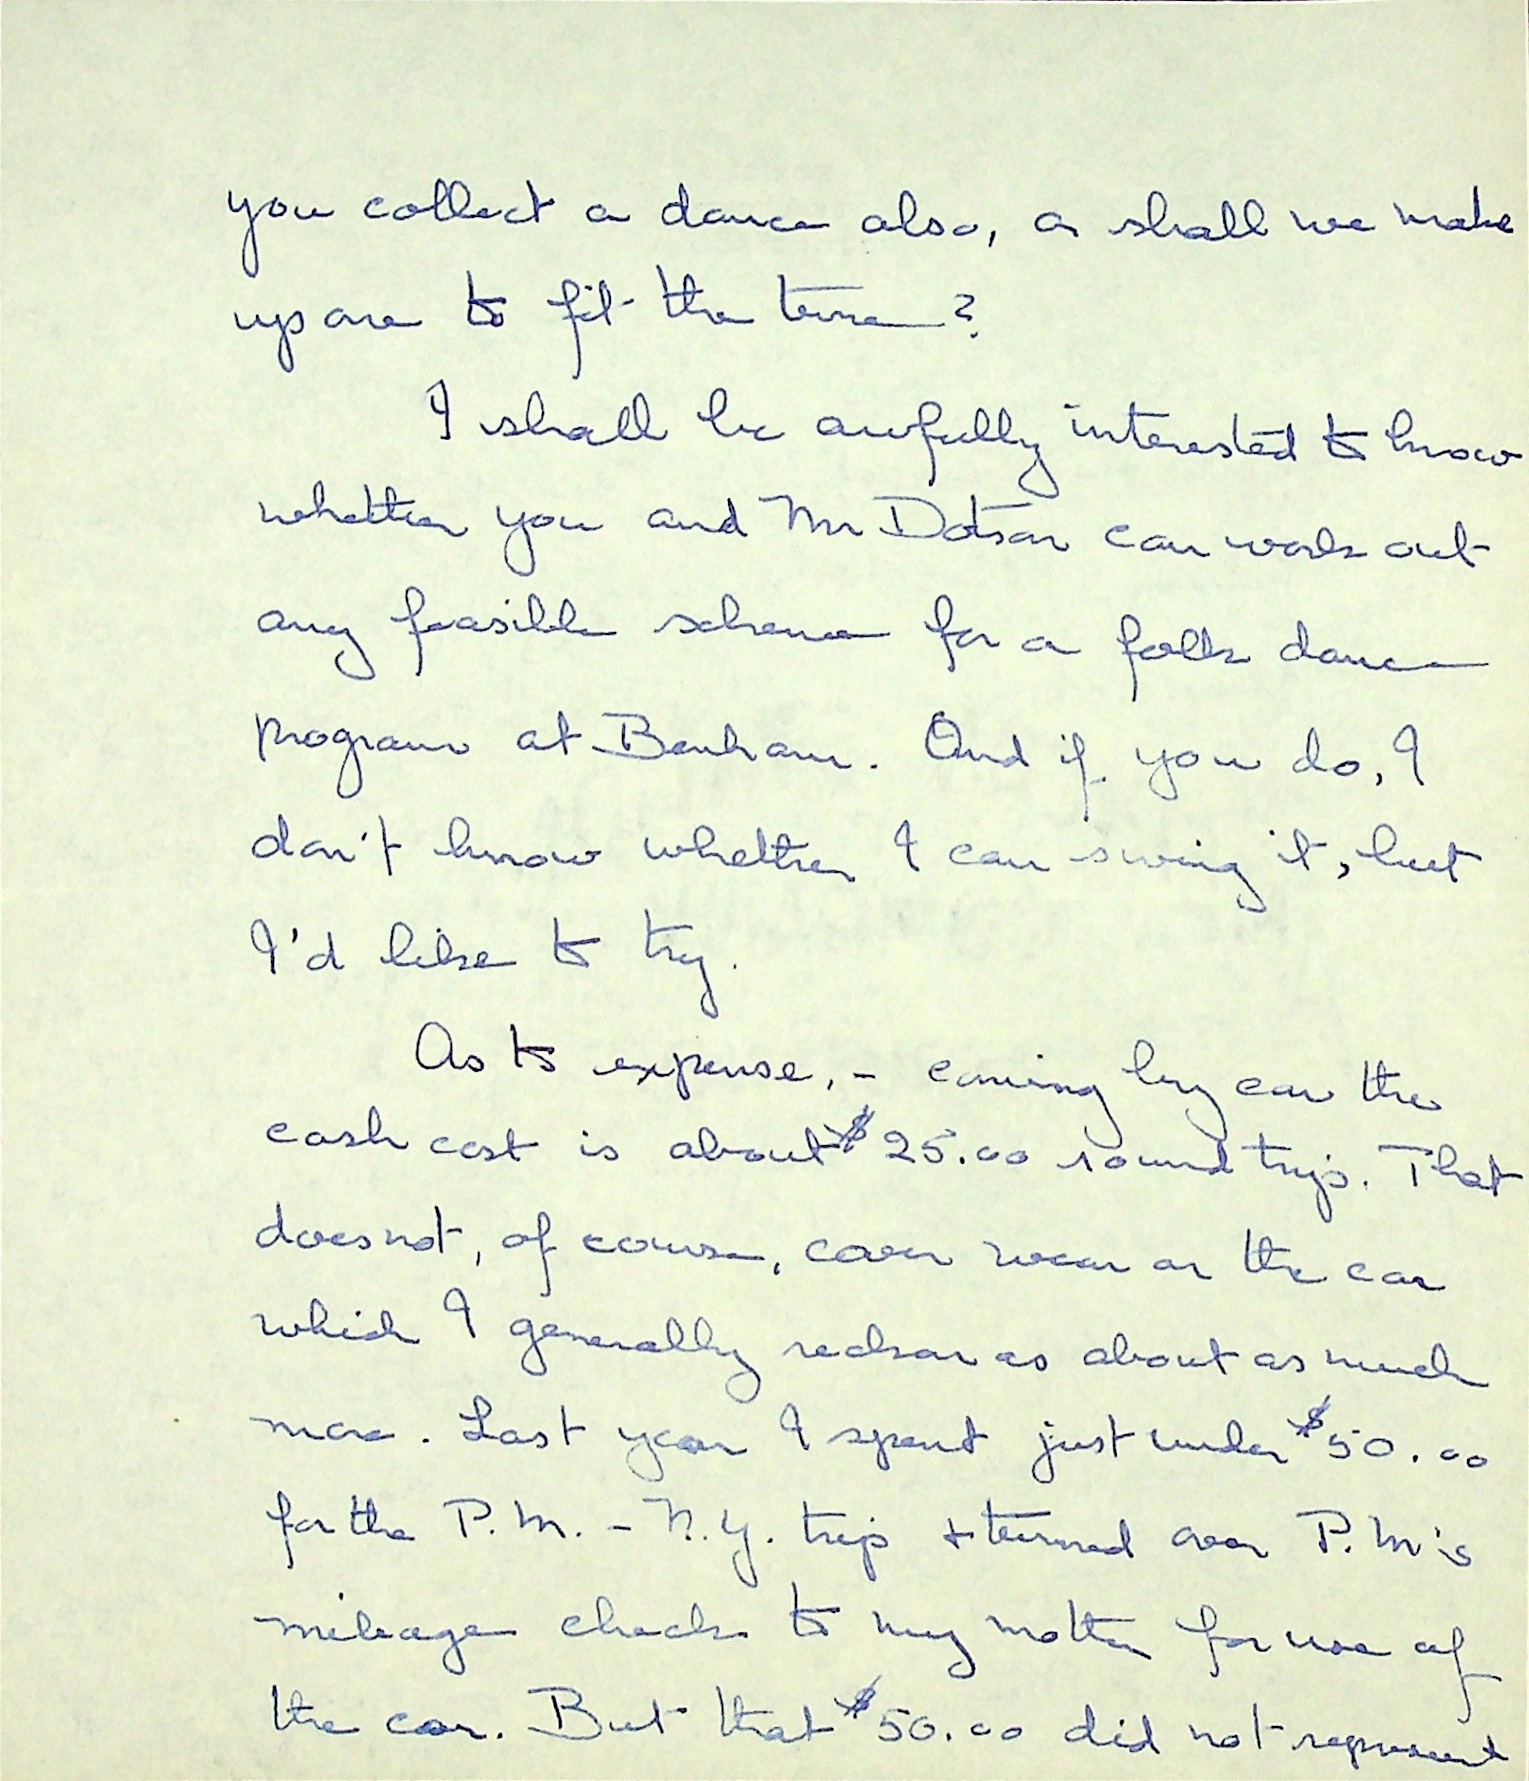 you collect a dance also, or shall we make
up one to fit the tune?
I shall be awfully interested to know
whether you and Mr Dotson can work out
any feasible scheme for a folk dance
program at Benham. And if you do, I
don't know whether I can swing it, but
I'd like to try.
As to expense, - coming by car the
cash cost is about $25.00 round trip. That
does not, of course, cover wear on the car
which I generally reckon as about as much
more. Last year I spent just under $50.00
for the P.M. - N.Y. trip + turned over P.M's
mileage check to my mother for use of
the car. But that $50.00 did not represent